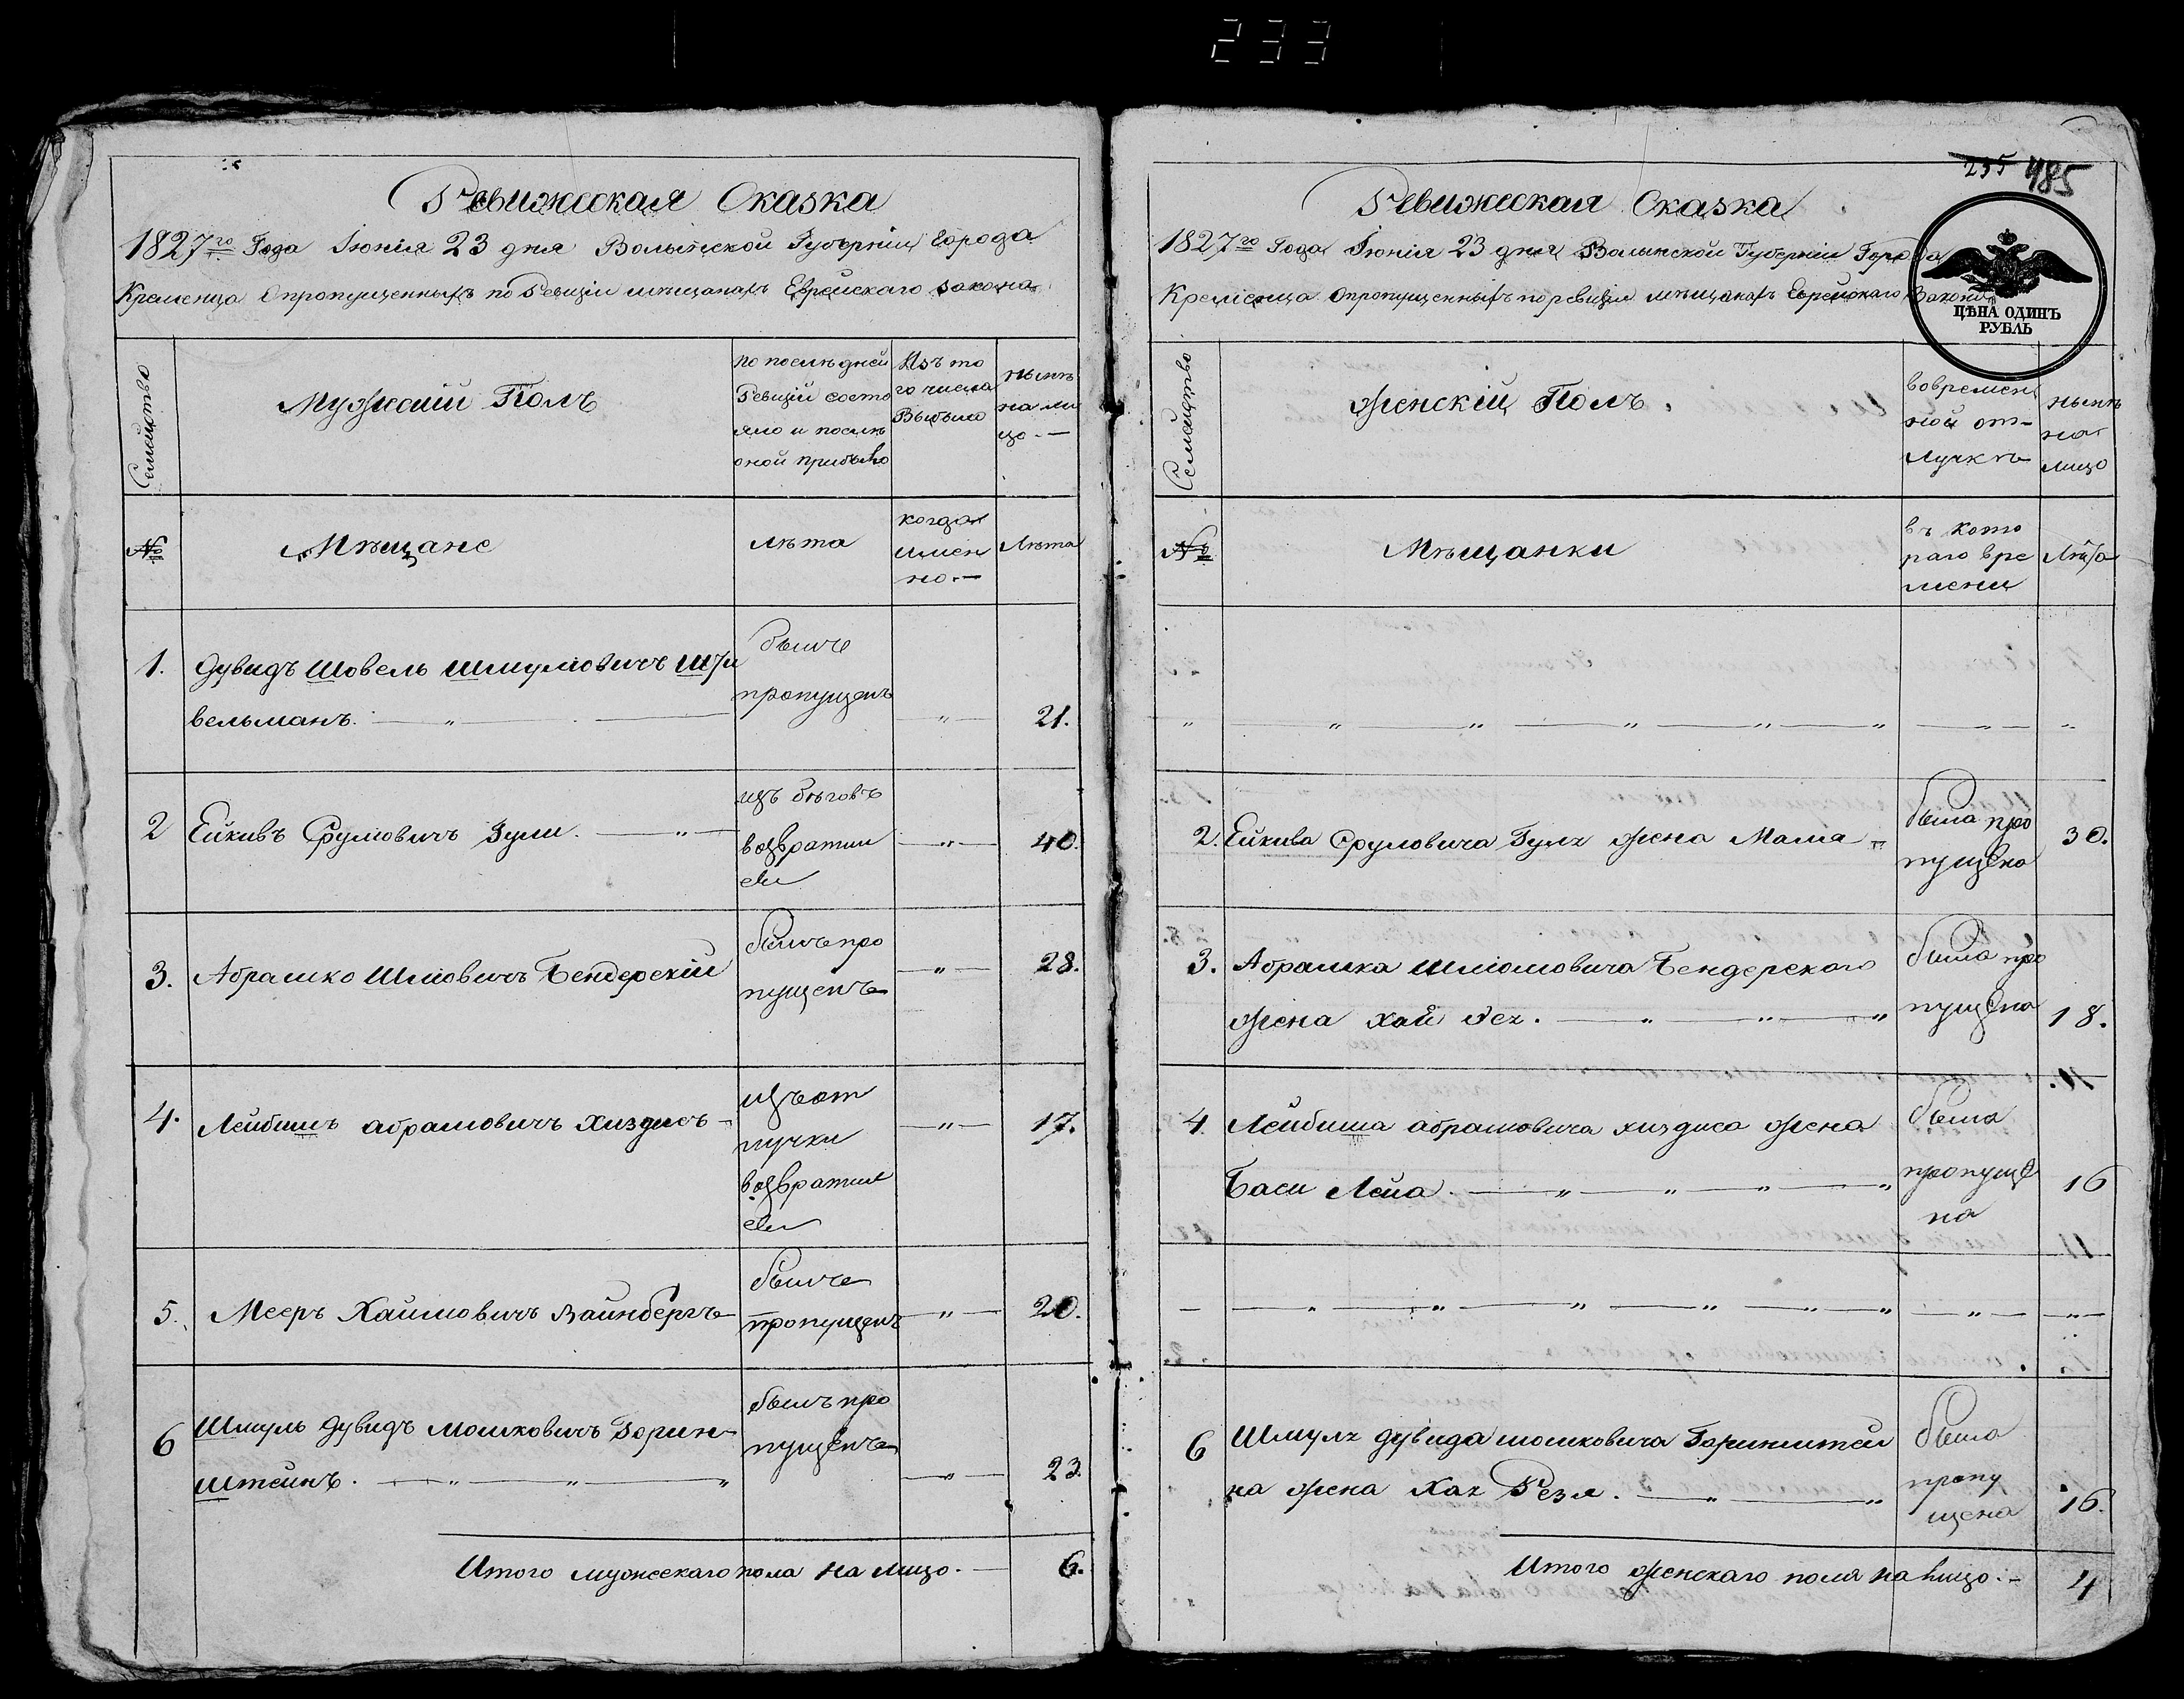 233
Ревижеская Сказка
1827го Года Июнія 23 дня Волынской Губерніи Города
Кременца о пропущенныхъ по Ревизіи мѣщанахъ Еврейскаго закона
Семейство
Мужескій Полъ
по послѣдней
Ревизіи состо
яло и послѣ
оной прибыло
Изъ то
го числа
Выбыло
нынѣ
на ли
цо.—
№
Мѣщане
лѣта
когда
имен
но.—
Лѣта
1. Дувидъ Шовель Шмулиовичъ Шти
вельманъ.
былъ
пропущенъ
21.
2 Ейкивъ Срулиовичъ Зули.
изъ бѣговъ
возвратил
ся
40.
3. Абрамко Шлиовичъ Бендерскій
былъ про
пущенъ
28.
4. Лейбишъ абрамовичъ хиздисъ
изъ от
лучки
возвратил
ся
17.
5. Меер Хаимовичъ Вайнбергъ
былъ
пропущенъ
20.
6 Шмуль Дувидъ Мошковичъ Горин
штеинъ.
былъ про
пущенъ
23.
Итого мужескаго пола на лицо.— 6.
235 485
Ревижеская Сказка
1827го Года Июнія 23 дня Волынской Губерніи Города
Кременца о пропущенныхъ по ревизіи мѣщанахъ Еврейскаго Закона
ЦѢНА ОДИНЪ
РУБЛЬ
Семейство
Женскій Полъ.
вовремен
ной от-
лучкѣ
нынѣ
на
лицо
№
Мѣщанки
въ кото
раго вре
мени
Лѣта
2. Ейкива Срулиовича Зуля жена Мала
была про
пущена
30.
3. Абрамка Шлиомовича Бендерскаго
жена хай
была про
пущена
18.
4 Лейбиша абрамовича хиздиса жена
Баси Леиа.
была
пропуще
на
16
6 Шмуля Дувида мошковича Горинштеи
на жена Хая Резя.
была
пропу
щена
16.
Итого женскаго пола на лицо.— 4